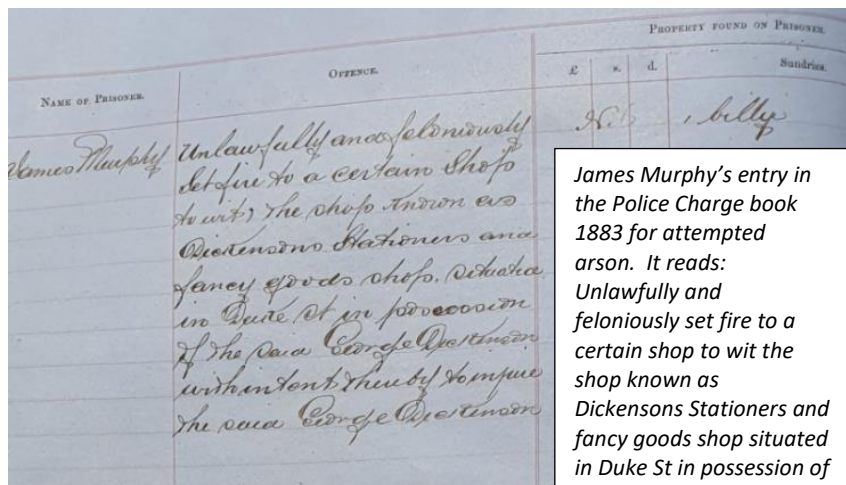 PROPERTY FOUND ON PRISONER.
NAME OF PRISONER.
OFFENCE.
£ s. d. Sundries.
James Murphy
Unlawfully and feloniously
Set fire to a certain Shop
to wit, The shop known as
Dickensons Stationers and
fancy goods shop. Situated
in Duke St in possession
of the said George Dickenson
with intent thereby to injure
the said George Dickenson
Nil
1 billy
James Murphy’s entry in
the Police Charge book
1883 for attempted
arson. It reads:
Unlawfully and
feloniously set fire to a
certain shop to wit the
shop known as
Dickensons Stationers and
fancy goods shop situated
in Duke St in possession of